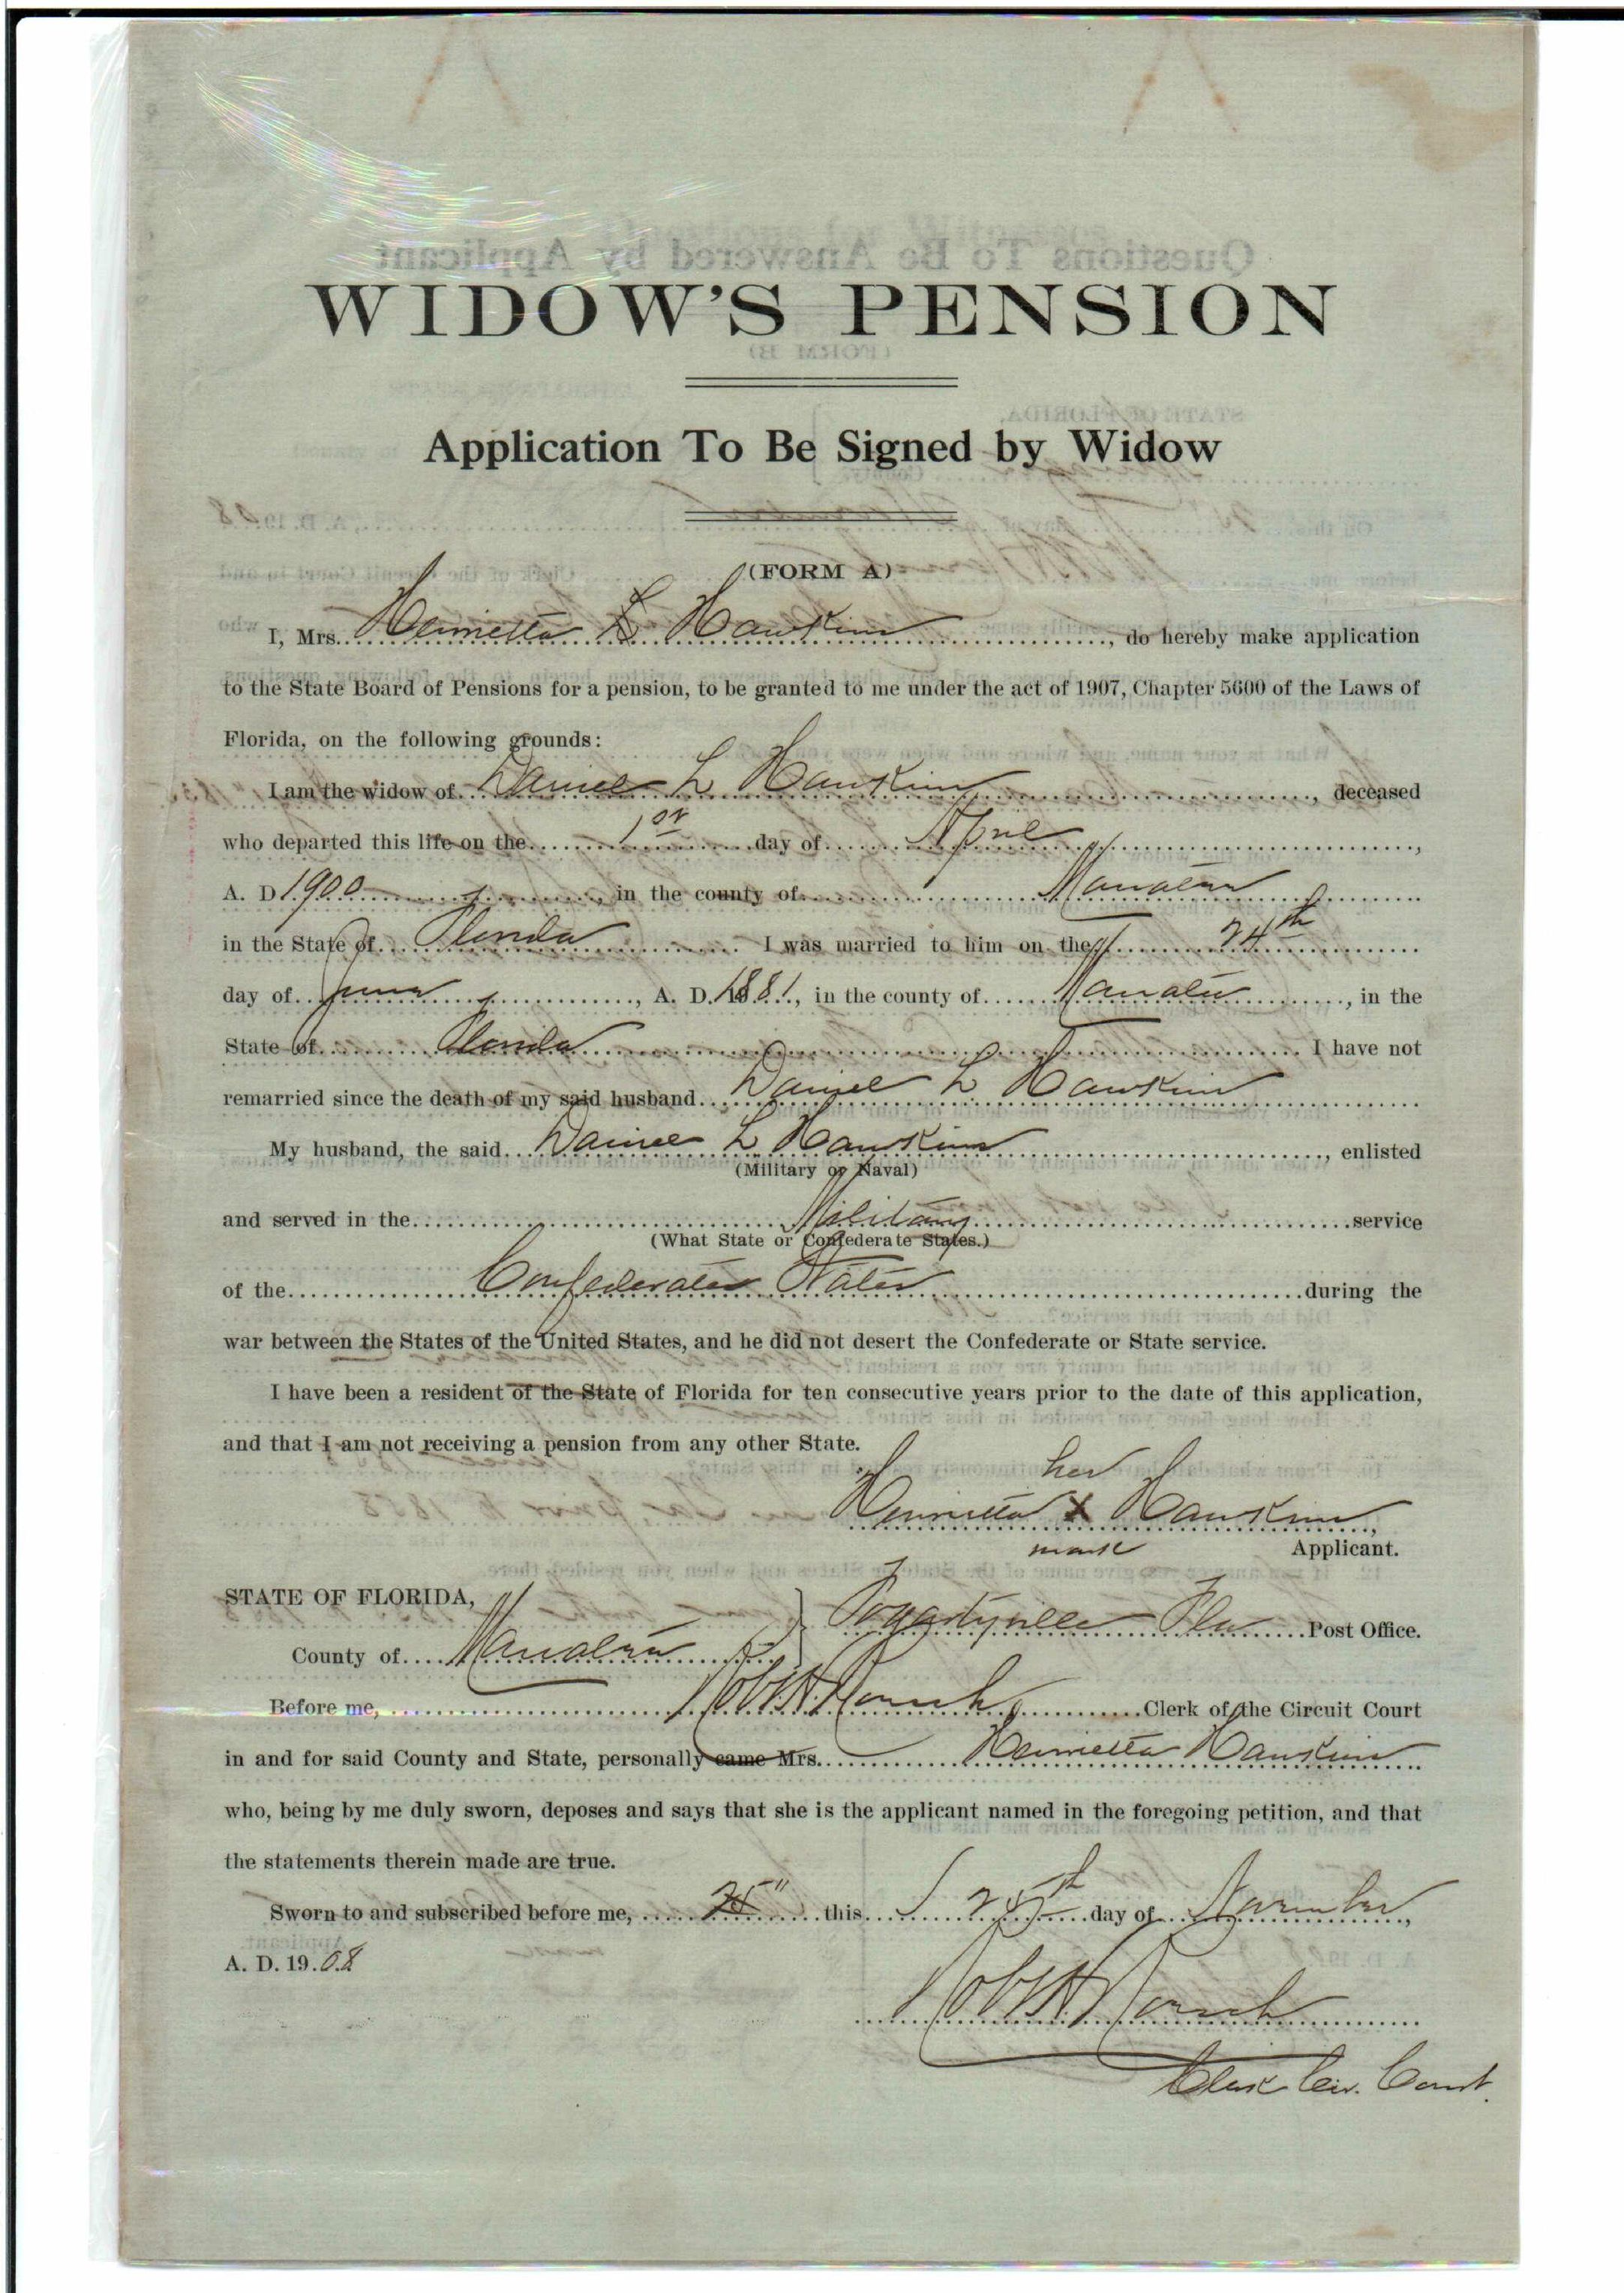 WIDOW'S PENSION
Application To Be Signed by Widow
(FORM A)
I, Mrs. Henrietta L Hawkins, do hereby make application
to the State Board of Pensions for a pension, to be granted to me under the act of 1907, Chapter 5600 of the Laws of
Florida, on the following grounds:
I am the widow of Daniel L Hawkins, deceased
who departed this life on the 1st day of April,
A. D. 1900, in the county of Manatee
in the State of Florida I was married to him on the 24th
day of June, A. D. 1881, in the county of Manatee, in the
State of Florida I have not
remarried since the death of my said husband Daniel L Hawkins
My husband, the said Daniel L Hawkins, enlisted
(Military or Naval)
and served in the Military service
(What State or Confederate States.)
of the Confederate States during the
war between the States of the United States, and he did not desert the Confederate or State service.
I have been a resident of the State of Florida for ten consecutive years prior to the date of this application,
and that I am not receiving a pension from any other State.
her
Henrietta X Hawkins,
mark Applicant.
STATE OF FLORIDA,
Fogartyville Fla Post Office.
County of Manatee
Before me, Robt. H. Roesch, Clerk of the Circuit Court
in and for said County and State, personally came Mrs. Henrietta Hawkins
who, being by me duly sworn, deposes and says that she is the applicant named in the foregoing petition, and that
the statements therein made are true.
Sworn to and subscribed before me, 25" this 25th day of November,
A. D. 1908
Robt H Roesch
Clerk Cir. Court.